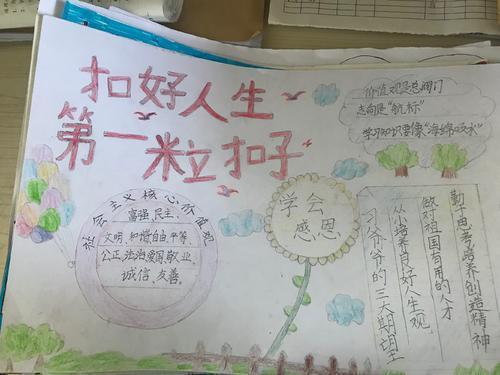 扣好人生
第一粒扣子
价值观是总阀门
志向是“航标”
学习知识要像“海绵吸水”
社会主义核心价值观
富强、民主、
文明、和谐、自由、平等、
公正、法治、爱国、敬业、
诚信、友善。
学会
感恩
勤于思考培养创造精神
做对祖国有用的人才
从小培养良好人生观
习爷爷的三大期望